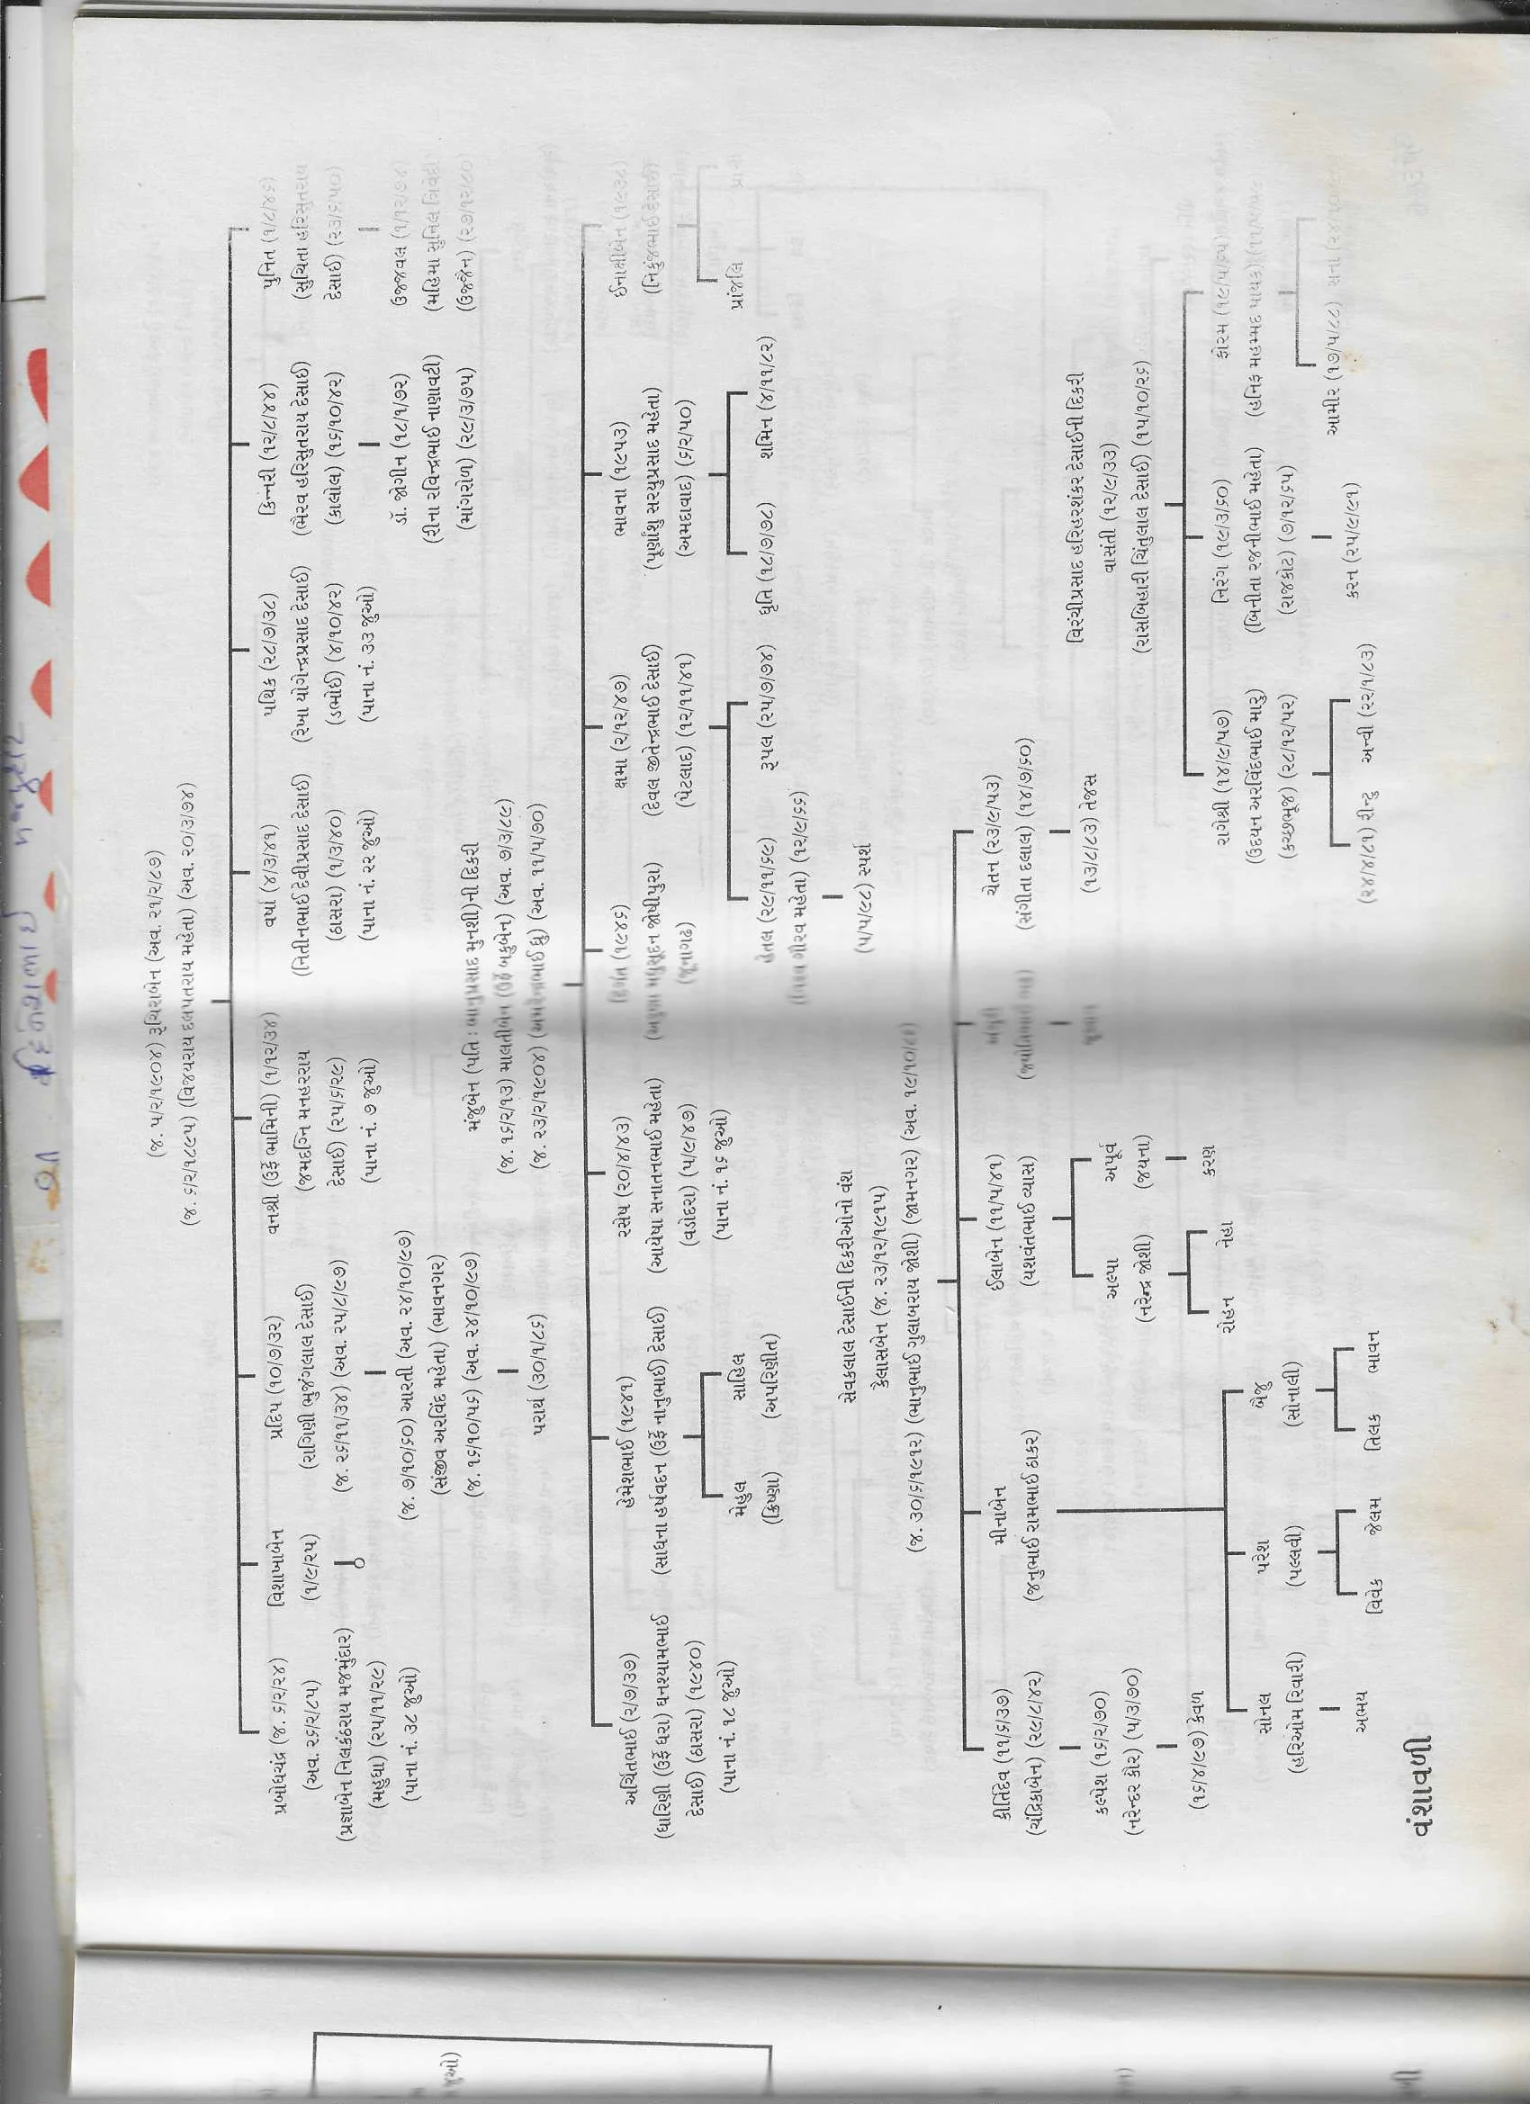 (જ. ૫/૨/૧૯૦૪) રૂચિરાબેન (અવ. ૨૧/૨/૮૭)
(જ. ૬/૨/૧૮૯૫) (વિજયરાય દલપતરાય મહેતા) (અવ. ૨૦/૩/૭૪)
પ્રબોધચંદ્ર (જ. ૬/૨/૨૪)
(અવ. ૨૬/૨/૮૫)
(પ્રજ્ઞાબેન નિલકંઠરાય મજમુંદાર)
(મહુધા) (૨૫/૧૧/૨૯)
(પાના નં. ૩૮ જુઓ)
વિશાખાબેન
(૧/૯/૨૫)
પ્રદિપ (૧૦/૭/૩૨)
(રાગિણી ભુજંગલાલ દેસાઈ)
(જ. ૨૬/૧૧/૩૪) (અવ. ૨૫/૮/૯૭)
(જ. ૭/૧૦/૬૦) આરતી (અવ. ૨૪/૧૦/૯૭)
(સંજીવ અરવિંદ મહેતા) (ભાવનગર)
(જ. ૧૬/૧૦/૫૬) (અવ. ૨૪/૧૦/૯૭)
પરાર્થ (૩૦/૧/૮૬)
વનશ્રી (ઉર્ફે ભામિની) (૧/૧૨/૩૪)
(જમદગ્નિ મનહરરાય
દેસાઈ) (૨૫/૬/૨૯)
(પાના નં. ૭ જુઓ)
વર્ષા (૪/૩/૪૧)
(નિતીનભાઈ દેવીપ્રસાદ દેસાઈ)
(ઠાસરા) (૧/૩/૪૦)
(પાના નં. ૨૨ જુઓ)
પથિક (૨૮/૭/૩૮)
(રેખા યોગેન્દ્રપ્રસાદ દેસાઈ)
(ડભોઈ) (૪/૧૦/૪૨)
(પાના નં. ૩૩ જુઓ)
કિન્નરી (૧૨/૮/૪૪)
(ભૈરવ હરિસુતરાય દેસાઈ)
(કાલોલ) (૧૬/૧૦/૪૨)
ડૉ. જોગીન (૧૮/૧/૭૨)
(રીના રવિન્દ્રભાઈ નાણાવટી)
(માંગરોળ) (૨૯/૩/૭૫)
પુનિત (૧/૮/૪૬)
(સુચિતા હરિસુતરાય
દેસાઈ) (૨૩/૬/૫૦)
ઉજ્જવલ (૧/૧૨/૭૪)
(મહિમા સુનિલ ત્રિવેદી)
(ઉજ્જૈન) (૨૭/૧૨/૮૦)
મંજુબેન (પતિ : ભાનુપ્રસાદ મુનશી)ની દિકરી
(જ. ૧૬/૨/૧૩) માલતીબેન (ઉર્ફે બકુબેન) (અવ. ૭/૩/૮૯)
(જ. ૨૩/૨/૧૯૦૪) (અમરેનાભાઈ ધ્રુ) (અવ. ૧૧/૫/૭૦)
અર્ચિતભાઈ (૨/૭/૩૭)
(ધારિણી (ઉર્ફે ધરા) ઘનશ્યામભાઈ
દેસાઈ) (ઠાસરા) (૧૯૪૦)
(પાના નં. ૧૮ જુઓ)
હેમેશભાઈ (૧૯૪૧)
(સાધના હર્ષવદન (ઉર્ફે નાનુભાઈ) દેસાઈ)
મેહુલ
(ક્રિષ્ણા)
સાહિલ
(અપરિણીત)
રસેષ (૨૦/૪/૪૩)
(આયેષા સનાતનભાઈ મહેતા)
(વડોદરા) (૫/૯/૪૭)
(પાના નં. ૧૬ જુઓ)
(૧૯૪૬)
મધુસૂદન જોષીપુરા)
(જૂનાગઢ)
ક્ષમા (૨/૧૨/૪૭)
(દેવલ જીતેન્દ્રભાઈ દેસાઈ)
(પેટલાદ) (૧૨/૧૧/૪૧)
હેતલ (૨૯/૧૧/૬૯)
ગૌરવ મહેતા) (૧૨/૯/૬૬)
(૫/૫/૯૮) સ્પર્શ
રૂપલ (૨૫/૭/૭૪)
ભાવના (૧૯૫૩)
(પૂર્ણાંશુ સરયુપ્રસાદ મહેતા)
(અમદાવાદ) (૬/૨/૫૦)
ધૃતિ (૧૮/૭/૭૮)
શમિન (૪/૧૧/૮૨)
ઈનાક્ષીબેન (૧૯૩૮)
(નિકુંજભાઈ દેસાઈ)
પ્રાંજલિ
સેવકલાલ દેસાઈની દિકરીઓનો વંશ
કૈલાસબેન (જ. ૨૩/૧૨/૧૯૧૫)
(જ. ૩૦/૬/૧૯૧૨) (ભાનુભાઈ ગુલાબરાય જોશી) (જામનગર) (અવ. ૧૯/૧૦/
કીર્તિદેવ (૧૧/૬/૩૭)
(ચંદ્રિકાબેન) (૨૯/૮/૪૨)
કલ્પેશ (૧૬/૨/૭૦)
(નરેન્દર કૌર) (૫/૩/૭૦)
(૧૬/૪/૯૭) કેવળ
મીનાબેન
(જનુભાઈ રામભાઈ ઠાકર)
સોનલ
(હરિઓમ રિવારી)
અભય
પરેશ
(પલ્લવી)
વિવેક
જેલમ
બૈજુ
(સોનાલી)
તિલક
ભાવન
ઈલાબેન (૧૧/૫/૪૧)
(યશવંતભાઈ વ્યાસ)
અલ્પા
(નરેન્દ્ર જોશી)
રોહન
નેહા
અપૂર્વ
(જયના)
કરણ
ચેતન (૨૩/૯/૫૩)
(સંગીતા દલાલ) (૧૪/૭/૬૦)
(૧૩/૮/૮૩) તેજસ
વિરંચીપ્રસાદ હરિહરશંકર દેસાઈની દિકરી
વાસંતી (૧૨/૯/૩૩)
(રાસબિહારી ચિંતુલાલ દેસાઈ) (૧૫/૧૦/૨૬)
રાગેશ્રી (૧૪/૯/૫૭)
(ઉદયન અરવિંદભાઈ મારુ)
(કચ્છભૂજ) (૨૮/૧૨/૫૨)
(૨૪/૪/૮૧) રીન્દુ
અન્વી (૨૨/૧/૮૩)
નિરંગ (૧૯/૩/૬૦)
(બિનીતા રજનીભાઈ મહેતા)
(રાજકોટ) (૭/૧૨/૬૫)
કરન (૨૫/૯/૯૧)
ફોરમ (૧૯/૫/૬૫)
(હનિફ મહમ્મદ પાયક)
આમીર (૧૭/૫/૮૮)
સના
વંશાવળી
જુઓ)